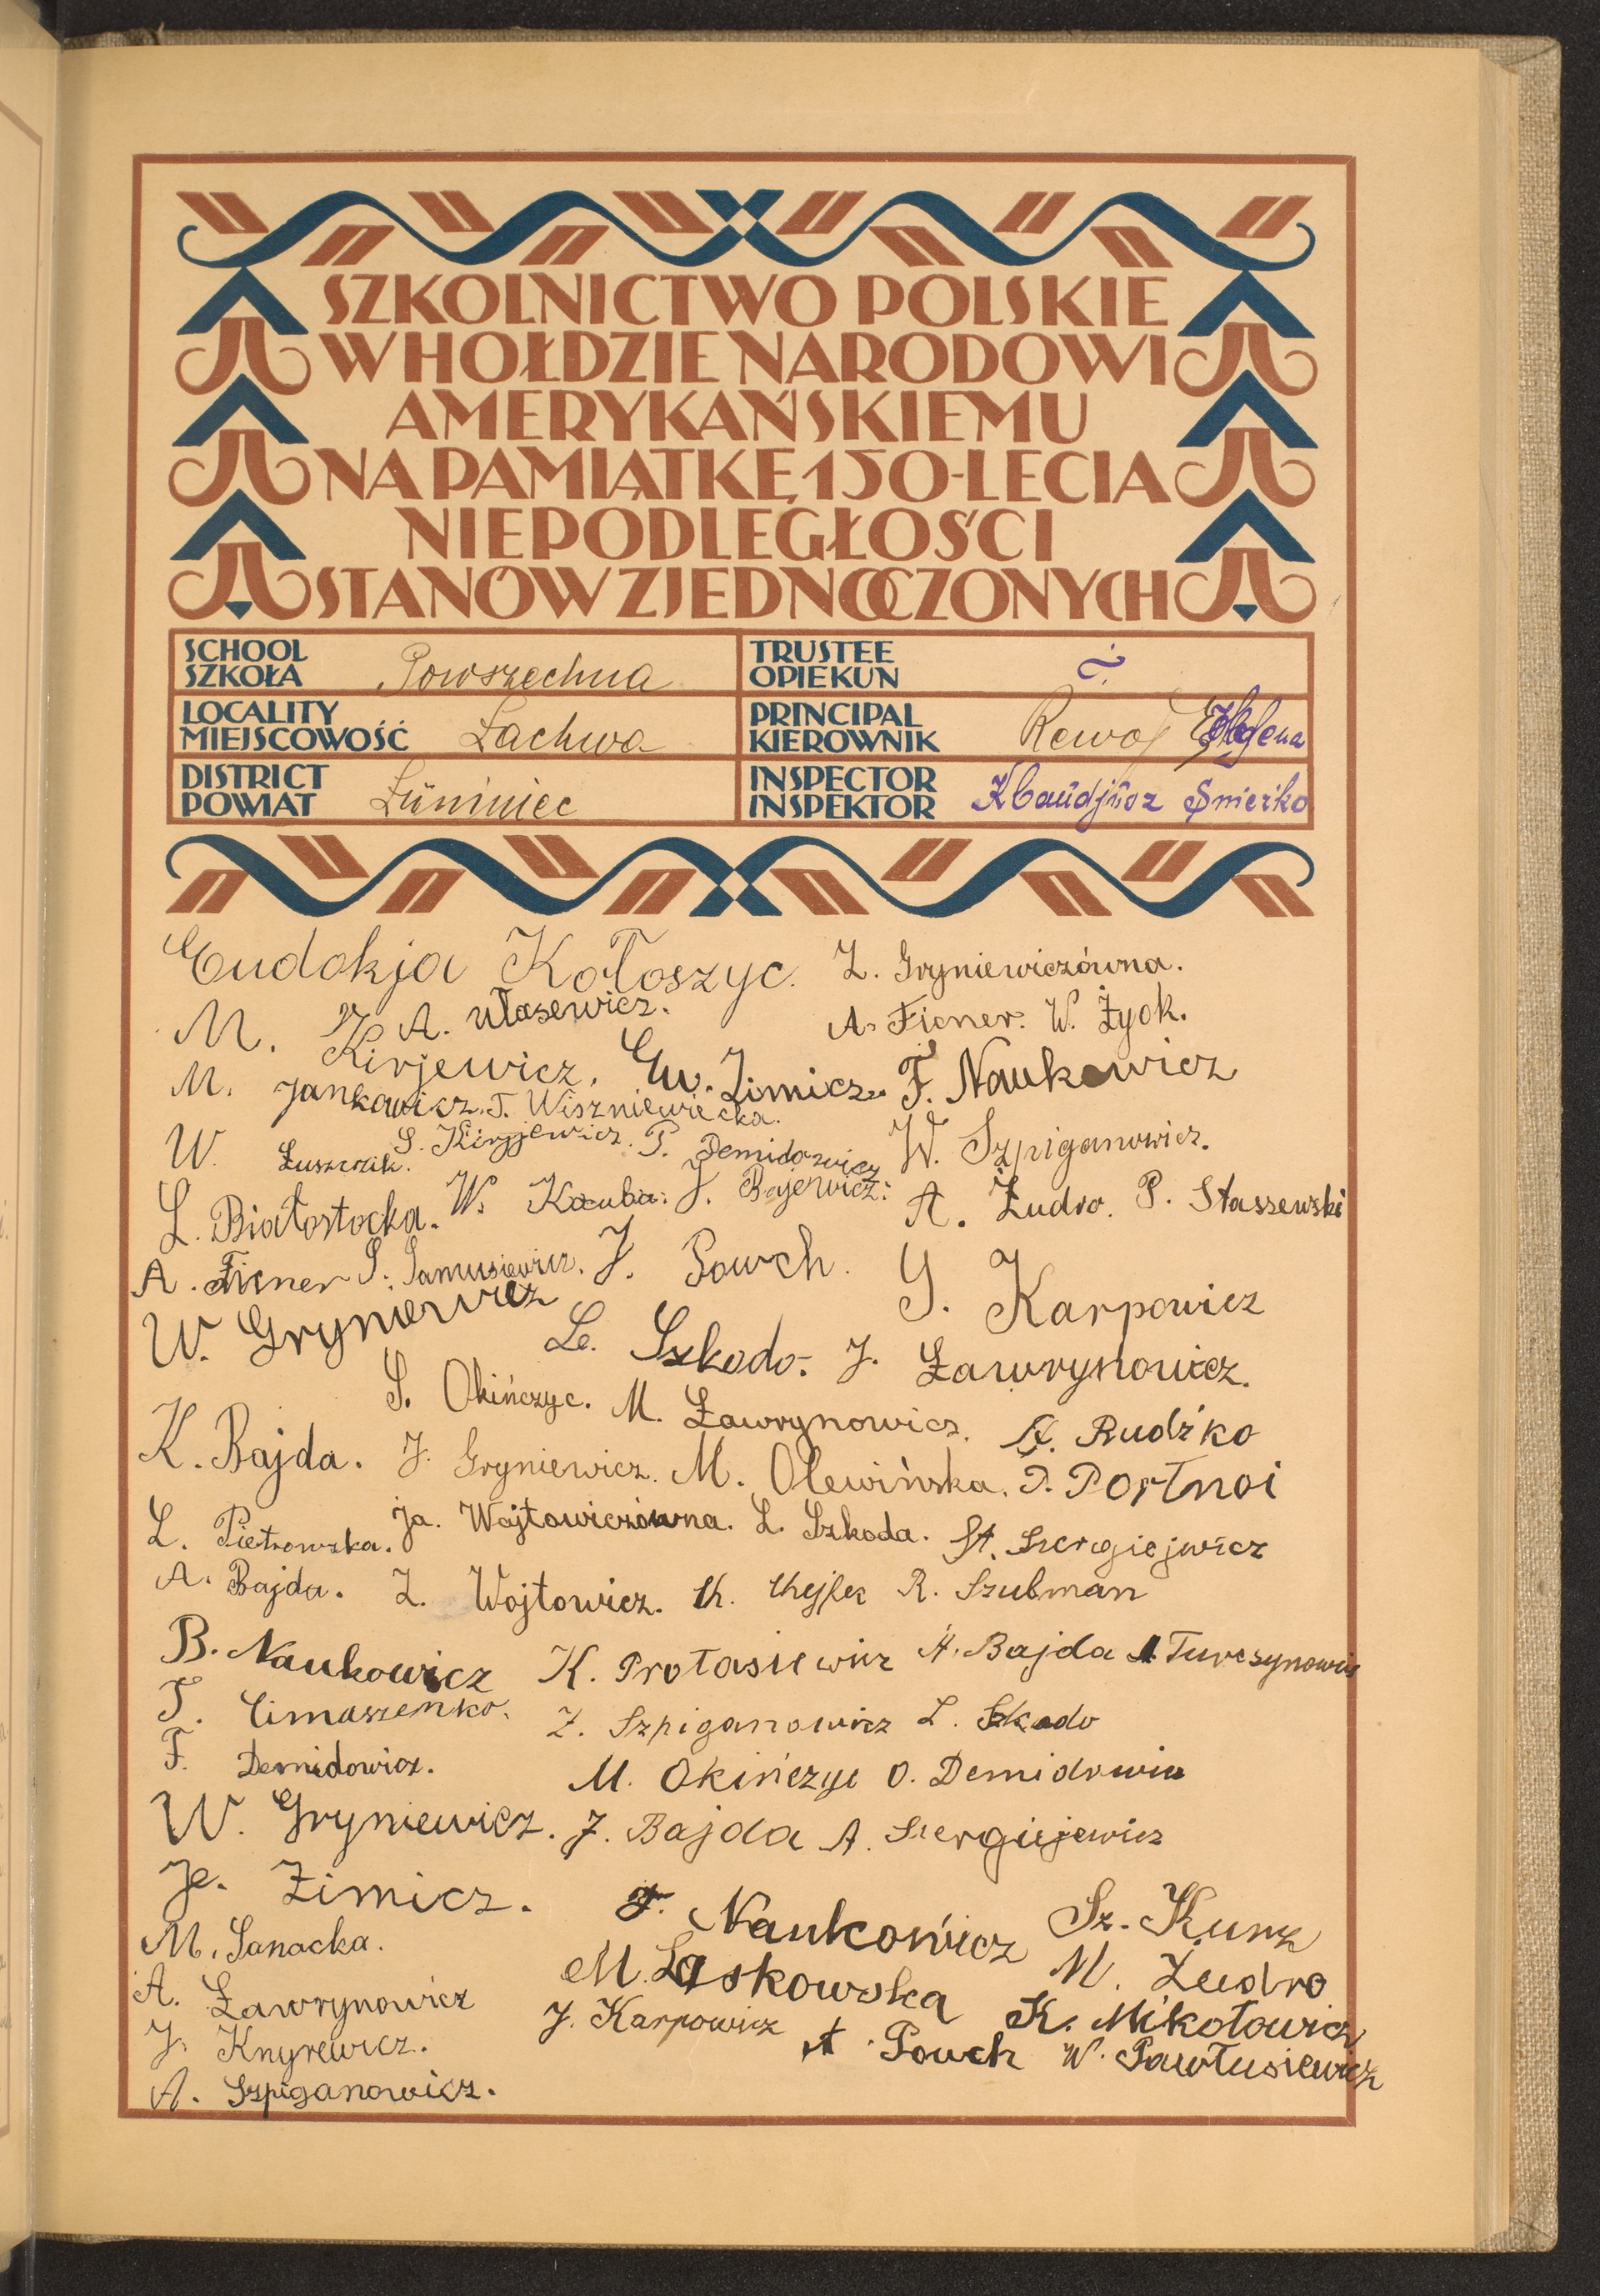 SZKOLNICTWO POLSKIE
W HOŁDZIE NARODOWI
AMERYKAŃSKIEMU
NA PAMIĄTKĘ 150-LECIA
NIEPODLEGŁOŚCI
STANÓW ZJEDNOCZONYCH
SCHOOL
SZKOŁA Powszechna
TRUSTEE
OPIEKUN
LOCALITY
MIEJSCOWOŚĆ Łachwa
PRINCIPAL
KIEROWNIK Rewoj
DISTRICT
POWIAT Łuniniec
INSPECTOR
INSPEKTOR Klaudjusz Śnieżko
Eudokja Kołoszyc. Z. Gryniewiczówna.
M. Kirjewicz. A. Własewicz. A. Ficner. W. Żyok.
M. Jankowicz. T. Wiszniewiecka. Ew. Zimicz. F. Naukowicz
W. Łuszczik. S. Kiryjewicz. P. Demidowicz W. Szpiganowicz.
L. Białostocka. W. Kauba. J. Bajewicz. A. Żudro. P. Staszewski
A. Ficner S. Janusiewicz. J. Powch. J. Karpowicz
W. Gryniewicz Le. Szkodo. J. Ławrynowicz.
S. Okińczyc. M. Ławrynowicz. A. Rudźko
K. Bajda. J. Gryniewicz. M. Olewińska. P. Portnoi
L. Pietrowska. Ja. Wojtowiczówna. L. Szkoda. St. Szergiejwicz
A. Bajda. Z. Wojtowicz. R. Szulman
B. Naukowicz K. Protasiewicz A. Bajda A Turczynowicz
T. Cimaszenko. Z. Szpiganowicz L. Szkodo
F. Demidowicz. M. Okińczyc O. Demidowicz
W. Gryniewicz. J. Bajda A. Szergiejewicz
Je. Zimicz. F. Naukowicz Sz. Kunz
M. Sanacka. M. Laskowska M. Żudro
A. Ławrynowicz J. Karpowicz K. Mikołowicz
J. Knyrewicz. A. Powch W. Pawłusiewicz
A. Szpiganowicz.